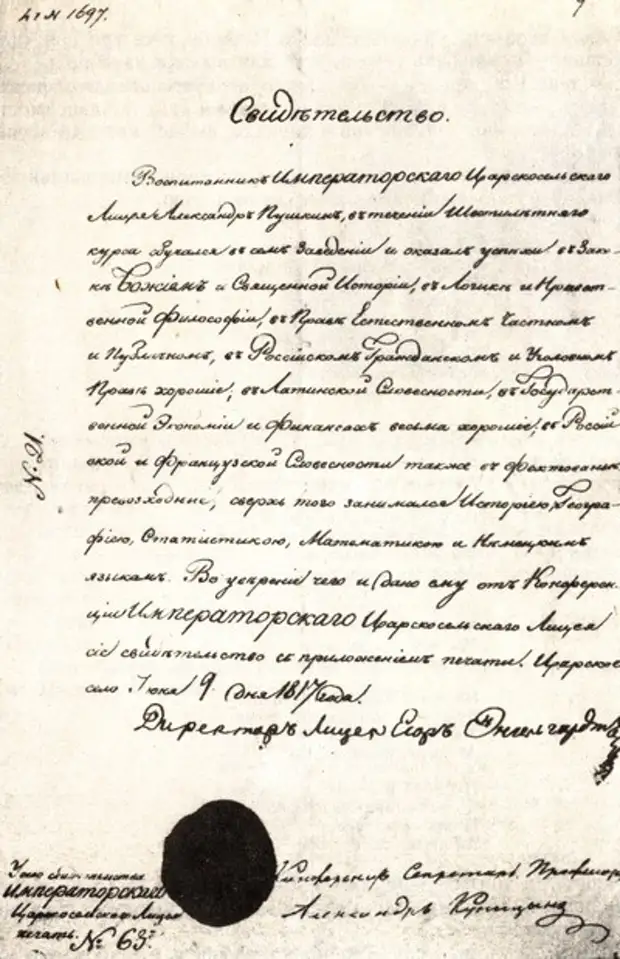 1697.
Свидѣтельство.
Воспитанникъ ИМПЕРАТОРСКАГО Царскосельскаго
Лицея Александръ Пушкинъ, въ теченіи Шестилѣтняго
курса обучался въ семъ Заведеніи и оказалъ успѣхи: въ Зако-
нѣ Божіемъ и Священной Исторіи, въ Логикѣ и Нравст-
венной Философіи, въ Правѣ Естественномъ Частномъ
и Публичномъ, въ Россійскомъ Гражданскомъ и Уголовномъ
Правѣ хорошіе; въ Латинской Словесности, въ Государст-
венной Экономіи и Финансахъ весьма хорошіе; въ Россій
ской и Французской Словесности также въ Фехтованьи
превозходные; сверхъ того занимался Исторіею, Геогра-
фіею, Статистикою, Математикою и Нѣмецкимъ
языкамъ. Во увѣреніе чего и дано ему отъ Конферен-
ціи ИМПЕРАТОРСКАГО Царскосельскаго Лицея
сіе свидѣтельство съ приложеніемъ печати. Царское
село Іюня 9 дня 1817 года.
Директоръ Лицея Егоръ Энгельгардтъ
Конференцъ Секретарь Профессор
Александръ Куницынъ
№ 21.
ИМПЕРАТОРСКАГО
Царскосельскаго Лицея
печать.
№ 63.